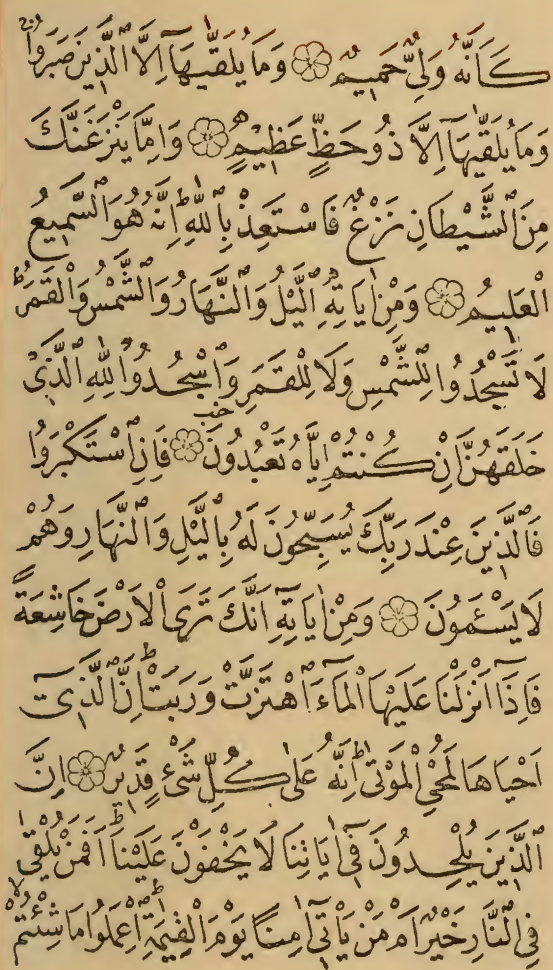 كَاَنَّهُ وَلِيٌّ حَمِيمٌ ۞ وَمَا يُلَقّٰيهَٓا اِلَّا الَّذِينَ صَبَرُواۚ
وَمَا يُلَقّٰيهَٓا اِلَّا ذُو حَظٍّ عَظِيمٍ ۞ وَاِمَّا يَنْزَغَنَّكَ
مِنَ الشَّيْطَانِ نَزْغٌ فَاسْتَعِذْ بِاللّٰهِۜ اِنَّهُ هُوَ السَّمِيعُ
الْعَلِيمُ ۞ وَمِنْ اٰيَاتِهِ الَّيْلُ وَالنَّهَارُ وَالشَّمْسُ وَالْقَمَرُۜ
لَا تَسْجُدُوا لِلشَّمْسِ وَلَا لِلْقَمَرِ وَاسْجُدُوا لِلّٰهِ الَّذِي
خَلَقَهُنَّ اِنْ كُنْتُمْ اِيَّاهُ تَعْبُدُونَ ۞ فَاِنِ اسْتَكْبَرُوا
فَالَّذِينَ عِنْدَ رَبِّكَ يُسَبِّحُونَ لَهُ بِالَّيْلِ وَالنَّهَارِ وَهُمْ
لَا يَسْـَٔمُونَ ۞ وَمِنْ اٰيَاتِهٓ اَنَّكَ تَرَى الْاَرْضَ خَاشِعَةً
فَاِذَٓا اَنْزَلْنَا عَلَيْهَا الْمَٓاءَ اهْتَزَّتْ وَرَبَتْۜ اِنَّ الَّذِٓي
اَحْيَاهَا لَمُحْيِ الْمَوْتٰىۜ اِنَّهُ عَلٰى كُلِّ شَيْءٍ قَدِيرٌ ۞ اِنَّ
الَّذِينَ يُلْحِدُونَ فِٓي اٰيَاتِنَا لَا يَخْفَوْنَ عَلَيْنَاۜ اَفَمَنْ يُلْقٰى
فِي النَّارِ خَيْرٌ اَمْ مَنْ يَأْتِٓي اٰمِنًا يَوْمَ الْقِيٰمَةِۜ اِعْمَلُوا مَا شِئْتُمْۙ